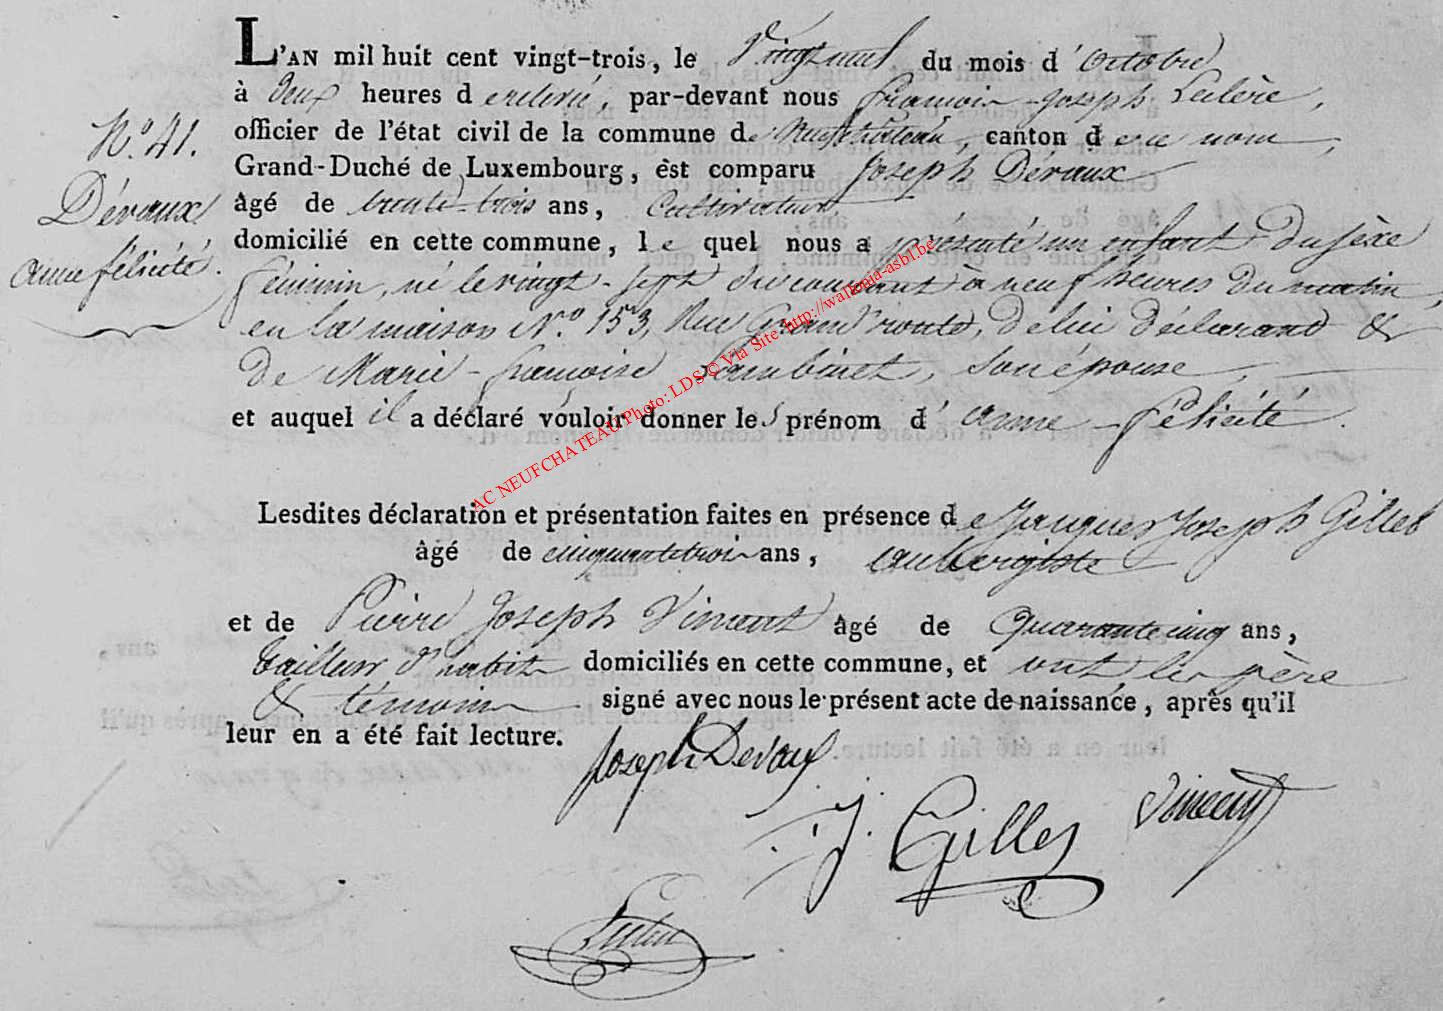 L'AN mil huit cent vingt-trois, le Vingt neuf du mois d'octobre
à Deux heures d e relevé, par-devant nous François-Joseph Leclère,
officier de l'état civil de la commune de Neufchâteau, canton d e ce nom,
Grand-Duché de Luxembourg, èst comparu Joseph Dévaux
âgé de trente-trois ans, Cultivateur
domicilié en cette commune, l e quel nous a présenté un enfant du sèxe
féminin, né le vingt-sept du courant à neuf heures du matin,
en la maison N.º 153, Rue Grand'route, de lui déclarant &
de Marie-françoise Lambinet, son épouse,
et auquel il a déclaré vouloir donner le s prénom d' anne-félicité.
Nº. 41.
Dévaux
anne félicité.
Lesdites déclaration et présentation faites en présence d e Jacques Joseph Gillet
âgé de cinquante trois ans, aubergiste
et de Pierre Joseph Vincent âgé de Quarante cinq ans,
tailleur d'habits domiciliés en cette commune, et ont, les père
& témoins signé avec nous le présent acte de naissance, après qu'il
leur en a été fait lecture.
Joseph Devaux
J. Gilles
Vincent
AC NEUFCHATEAU Photo: LDS © Via Site http://wallonia-asbl.be